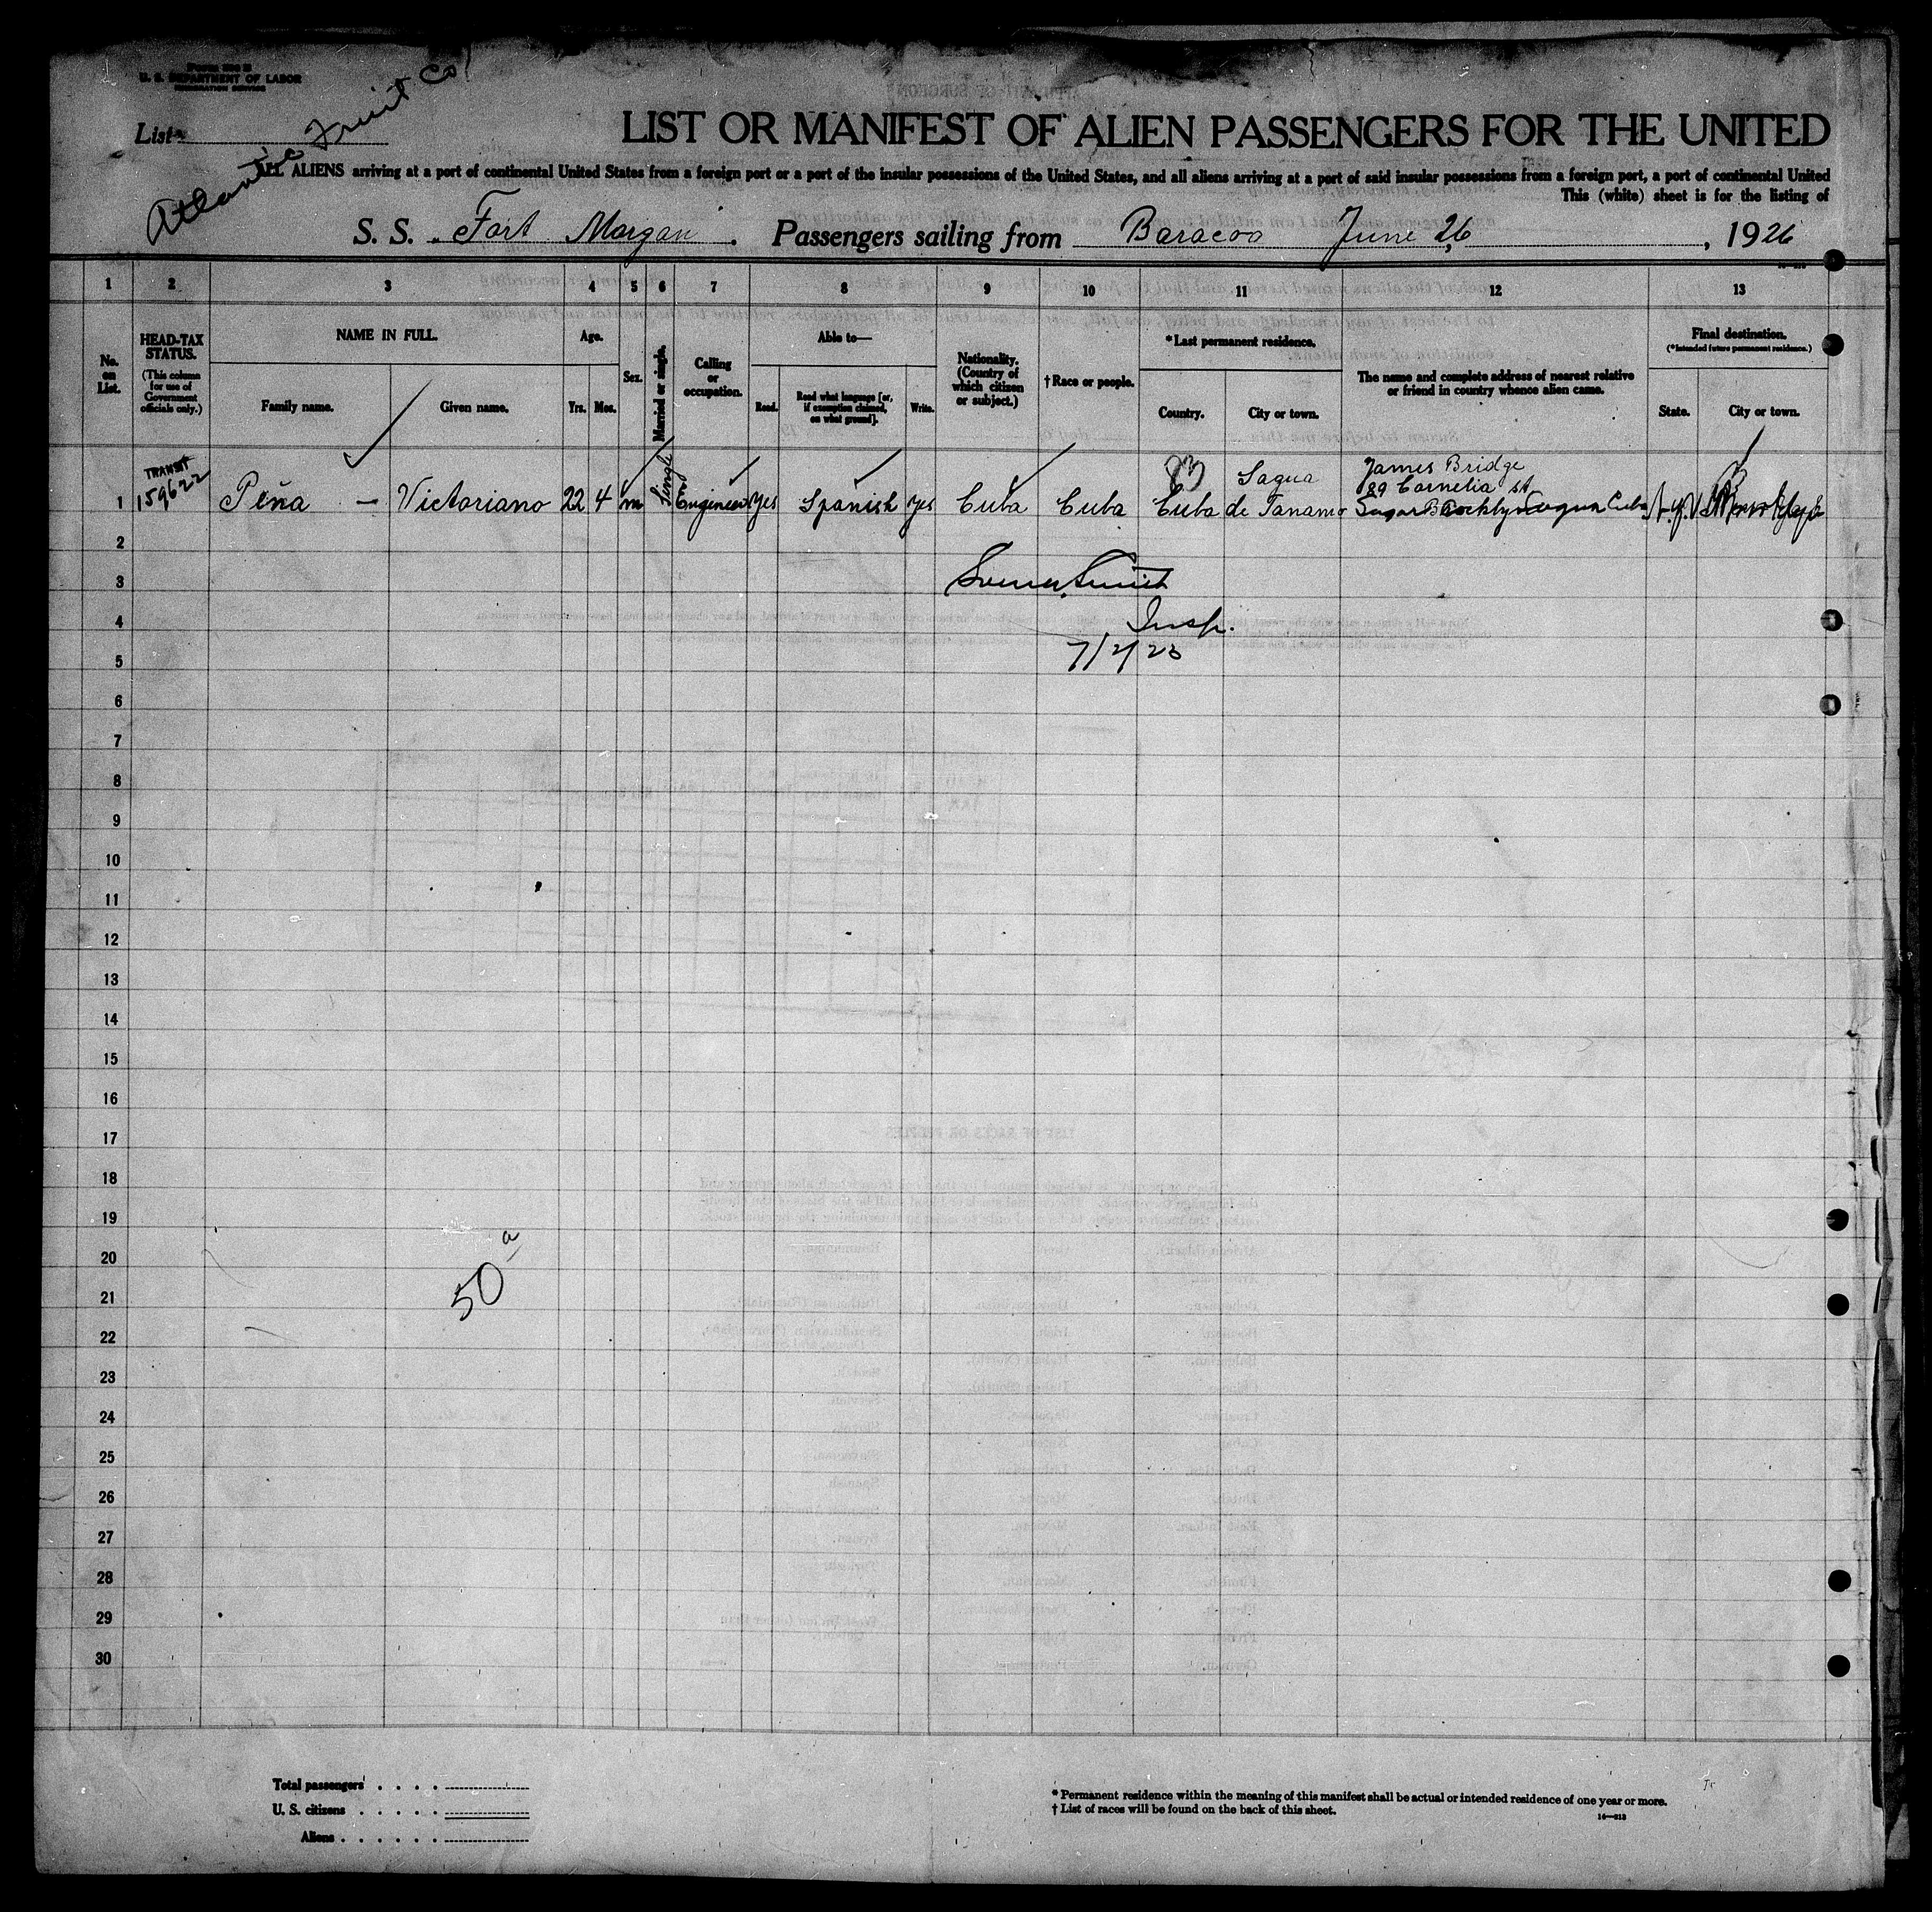 U. S. DEPARTMENT OF LABOR
IMMIGRATION SERVICE
Atlantic Fruit Co
List
LIST OR MANIFEST OF ALIEN PASSENGERS FOR THE UNITED
ALL ALIENS arriving at a port of continental United States from a foreign port or a port of the insular possessions of the United States, and all aliens arriving at a port of said insular possessions from a foreign port, a port of continental United
This (white) sheet is for the listing of
S. S. Fort Morgan. Passengers sailing from Baracoa June 26, 1926
1 2 3 4 5 6 7 8 9 10 11 12 13
No. on List.
HEAD-TAX STATUS.
(This column for use of Government officials only.)
NAME IN FULL.
Family name. Given name.
Age.
Yrs. Mos.
Sex.
Married or single.
Calling or occupation.
Able to—
Read. Read what language [or, if exemption claimed, on what ground]. Write.
Nationality. (Country of which citizen or subject.)
† Race or people.
* Last permanent residence.
Country. City or town.
The name and complete address of nearest relative or friend in country whence alien came.
Final destination.
(* Intended future permanent residence.)
State. City or town.
TRANSIT
159622
1 Peña — Victoriano 22 4 m Single Engineer yes Spanish yes Cuba Cuba Cuba Sagua de Tanamo
James Bridge
89 Cornelia st
Cuba N.Y.
Insp.
2
3
4
5
6
7
8
9
10
11
12
13
14
15
16
17
18
19
20
21
22
23
24
25
26
27
28
29
30
50 a
Total passengers . . . .
U. S. citizens . . . . .
Aliens . . . . . .
* Permanent residence within the meaning of this manifest shall be actual or intended residence of one year or more.
† List of races will be found on the back of this sheet.